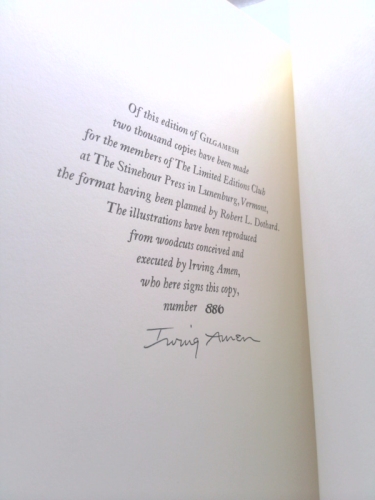 Of this edition of GILGAMESH
two thousand copies have been made
for the members of The Limited Editions Club
at The Stinehour Press in Lunenburg, Vermont,
the format having been planned by Robert L. Dothard.
The illustrations have been reproduced
from woodcuts conceived and
executed by Irving Amen,
who here signs this copy,
number 886
Irving Amen